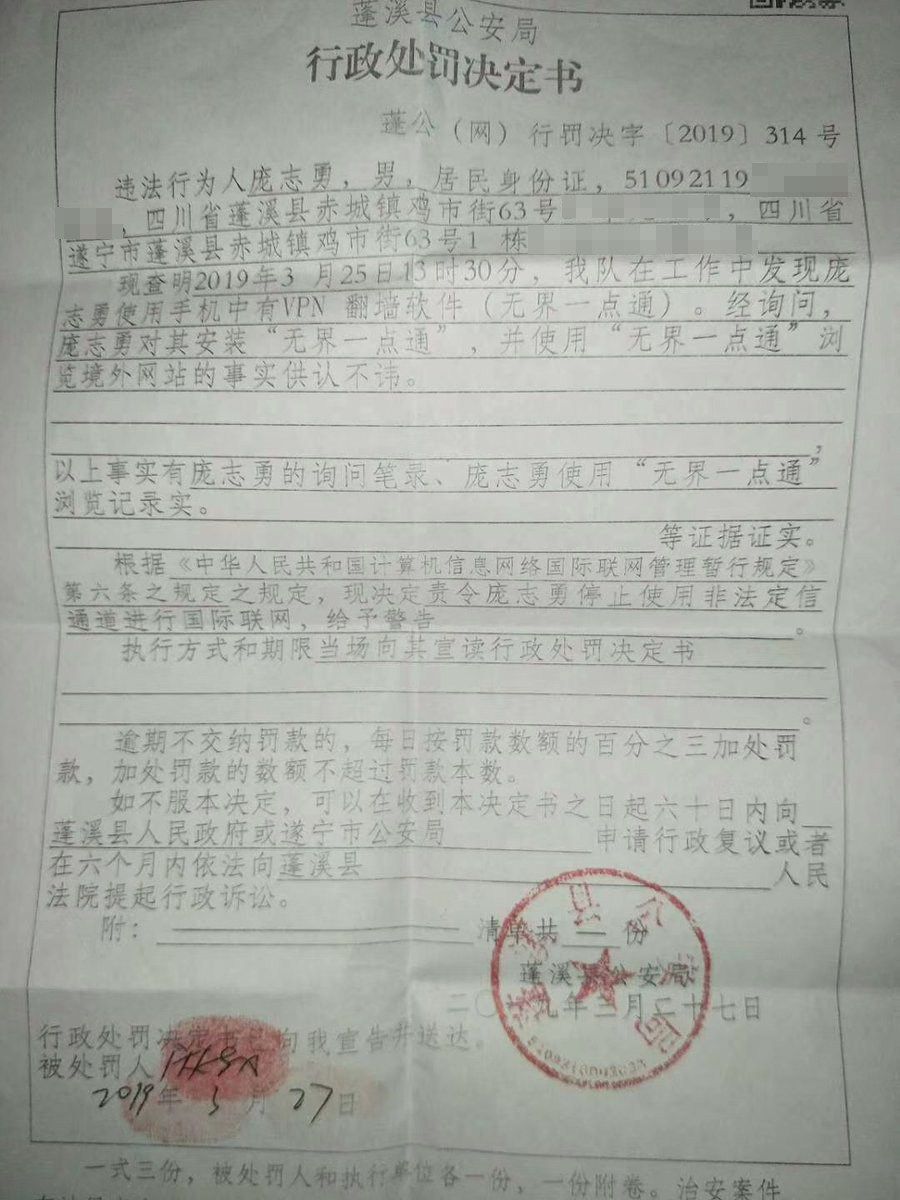 蓬溪县公安局
行政处罚决定书
蓬公（网）行罚决字〔2019〕314号
违法行为人庞志勇，男，居民身份证，51092119
，四川省蓬溪县赤城镇鸡市街63号，四川省
遂宁市蓬溪县赤城镇鸡市街63号1 栋
现查明2019年3 月25日13时30分，我队在工作中发现庞
志勇使用手机中有VPN 翻墙软件（无界一点通）。经询问，
庞志勇对其安装“无界一点通”，并使用“无界一点通”浏
览境外网站的事实供认不讳。
，
以上事实有庞志勇的询问笔录、庞志勇使用“无界一点通”
浏览记录实。
等证据证实。
根据《中华人民共和国计算机信息网络国际联网管理暂行规定》
第六条之规定之规定，现决定责令庞志勇停止使用非法定信
通道进行国际联网，给予警告。
执行方式和期限当场向其宣读行政处罚决定书
。
逾期不交纳罚款的，每日按罚款数额的百分之三加处罚
款，加处罚款的数额不超过罚款本数。
如不服本决定，可以在收到本决定书之日起六十日内向
蓬溪县人民政府或遂宁市公安局 申请行政复议或者
在六个月内依法向蓬溪县 人民
法院提起行政诉讼。
附： 清单共一份
蓬溪县公安局
二〇一九年三月二十七日
行政处罚决定书已向我宣告并送达。
被处罚人
2019年3月27日
一式三份，被处罚人和执行单位各一份，一份附卷。治安案件